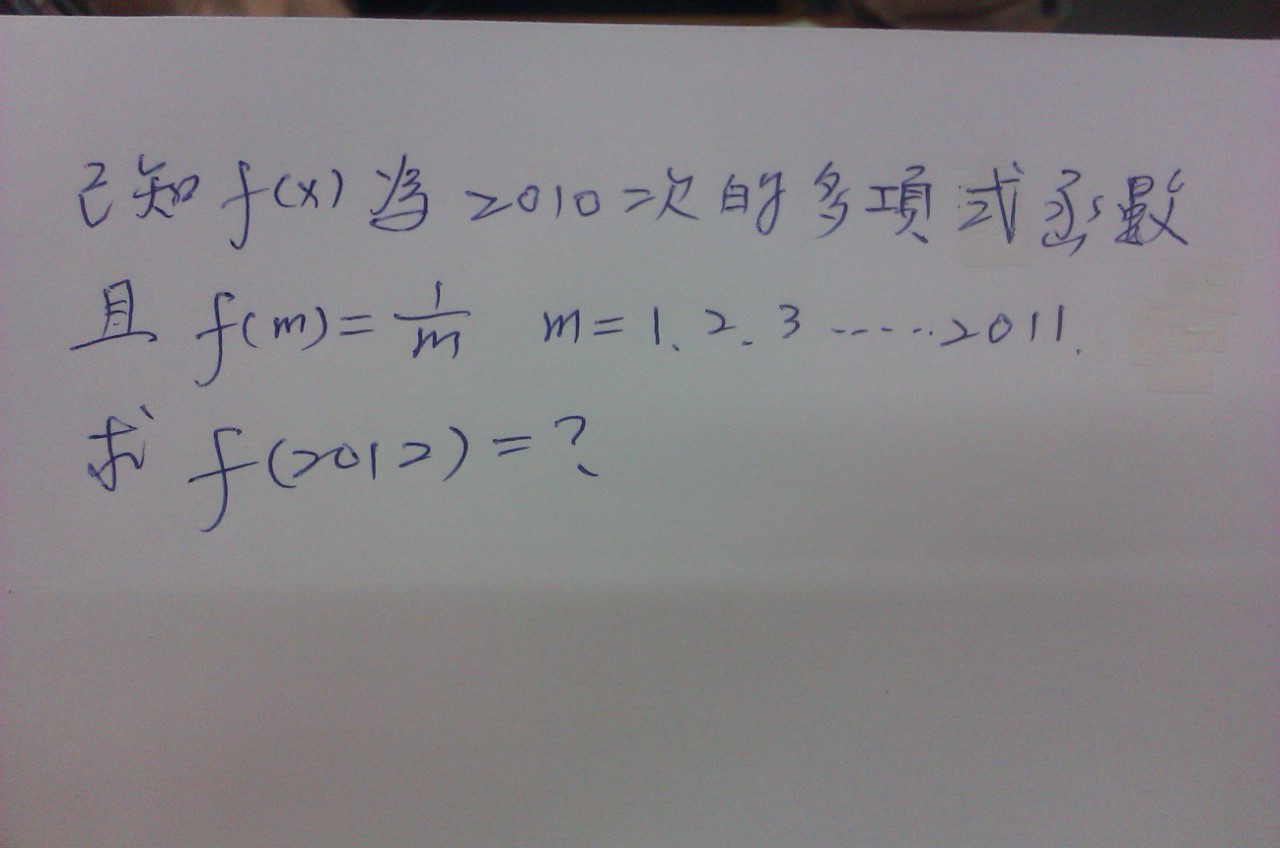 已知 f(x) 為 2010 次的多項式函數
且 f(m) = 1/m m = 1. 2. 3 ...... 2011.
求 f(2012) = ?